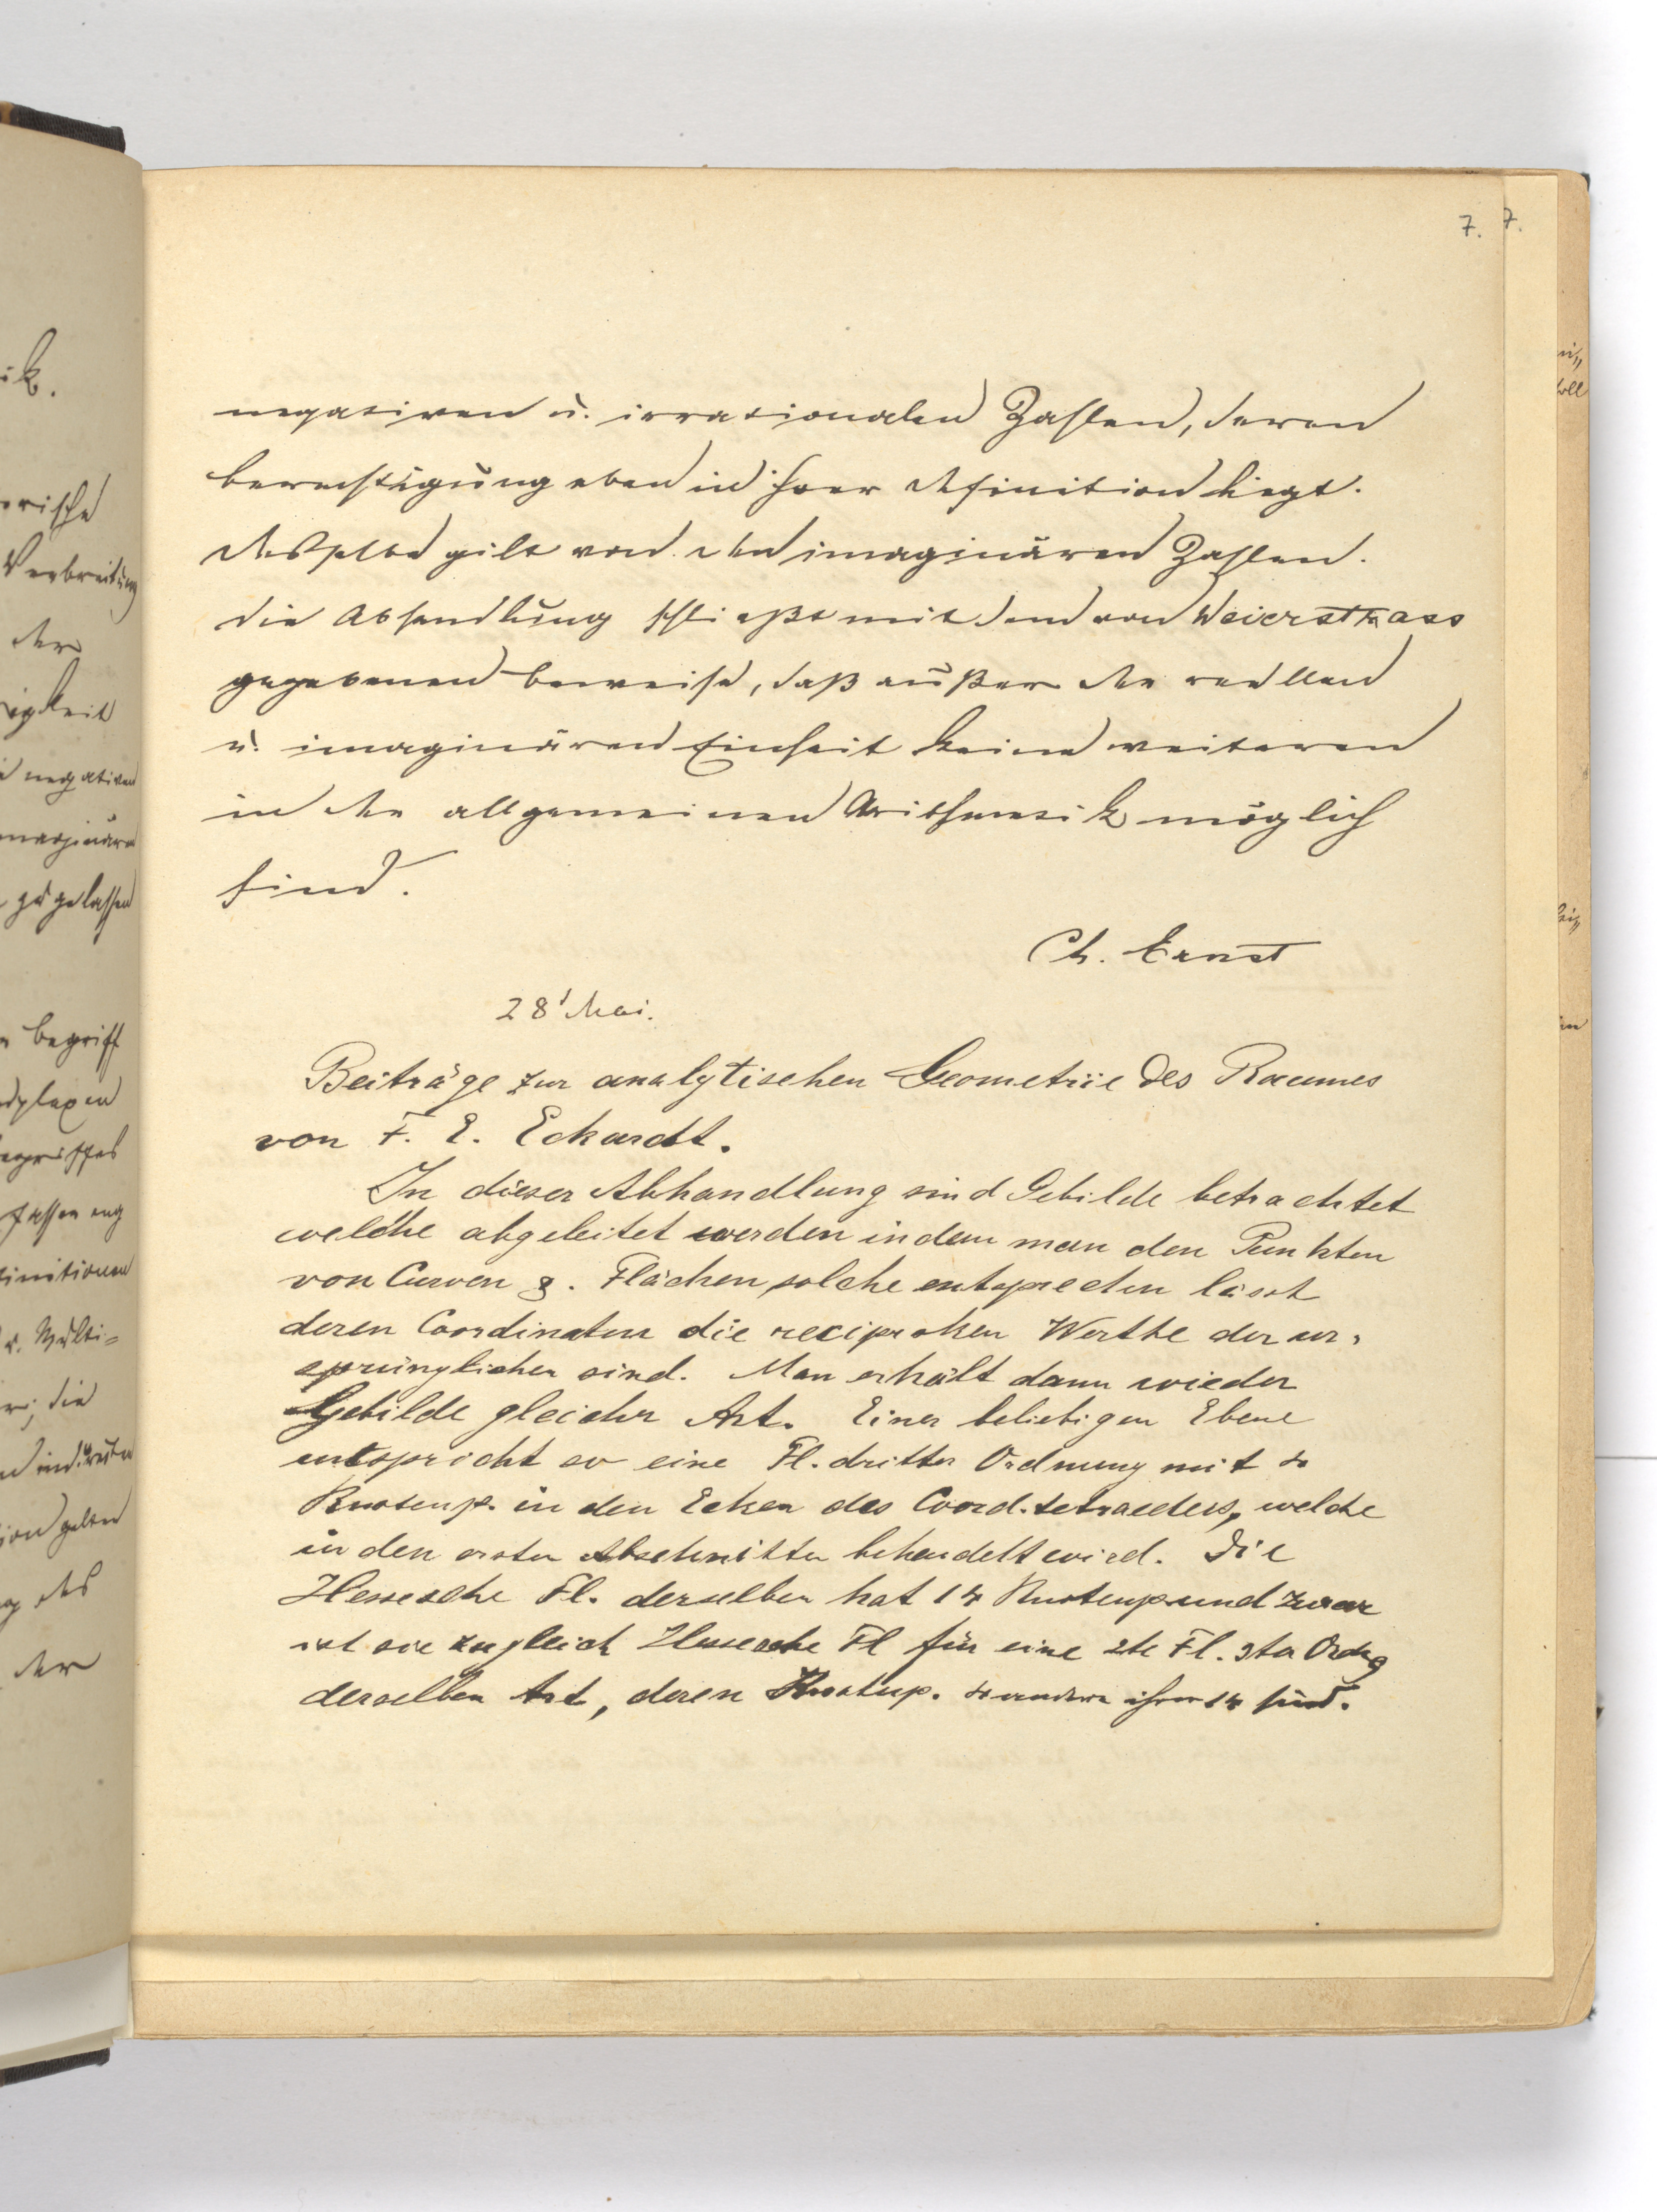 7. 7.
negativen u. irrationalen Zahlen, deren
Berechtigung eben in ihrer Definition liegt.
Dasselbe gilt von den imaginären Zahlen.
Die Abhandlung schließt mit dem von Weierstrass
gegebenen Beweise, daß außer der reellen
u. imaginären Einheit keine weiteren
in der allgemeinen Arithmetik möglich
sind.
Ch. Ernst
28' Mai.
Beiträge zur analytischen Geometrie des Raumes
von F. E. Eckardt.
In dieser Abhandlung sind Gebilde betrachtet
welche abgeleitet werden indem man den Punkten
von Curven & Flächen, solche entsprechen lässt
deren Coordinaten die reciproken Werthe der ur-
sprünglichen sind. Man erhält dann wieder
Gebilde gleicher Art. Einer beliebigen Ebene
entspricht so eine Fl. dritter Ordnung mit 4
Knotenp. in den Ecken des Coord.tetraeders, welche
in den ersten Abschnitten behandelt wird. Die
Hessesche Fl. derselben hat 14 Knotenp. und zwar
ist sie zugleich Hessesche Fl für eine 2te Fl. 3ter Ordng
derselben Art, deren Knotenp. 4 andere ihrer 14 sind.
ik.
Verbreitung
der
negativen
zugelassen
Begriff
u. Multi-
die
der